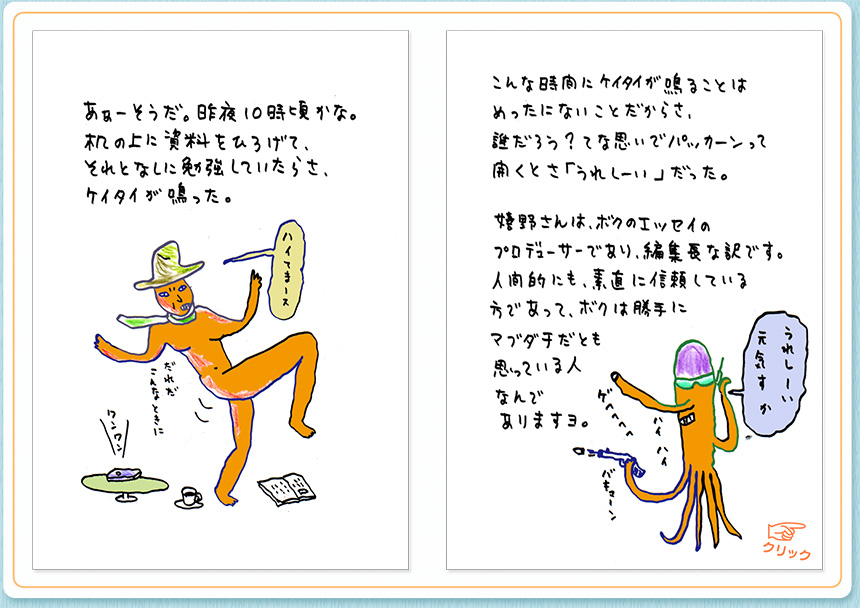 あぁーそうだ。昨夜10時頃かな。
机の上に資料をひろげて、
それとなしに勉強していたらさ、
ケイタイが鳴った。
ハイてまース
だれだ
こんなときに
ワンワン
こんな時間にケイタイが鳴ることは
めったにないことだからさ、
誰だろう？てな思いでパッカーンって
開くとさ「うれしーい」だった。
嬉野さんは、ボクのエッセイの
プロデューサーであり、編集長な訳です。
人間的にも、素直に信頼している
方であって、ボクは勝手に
マブダチだとも
思っている人
なんで
ありますヨ。
うれしーい
元気すか
ハイハイ
バキューン
クリック